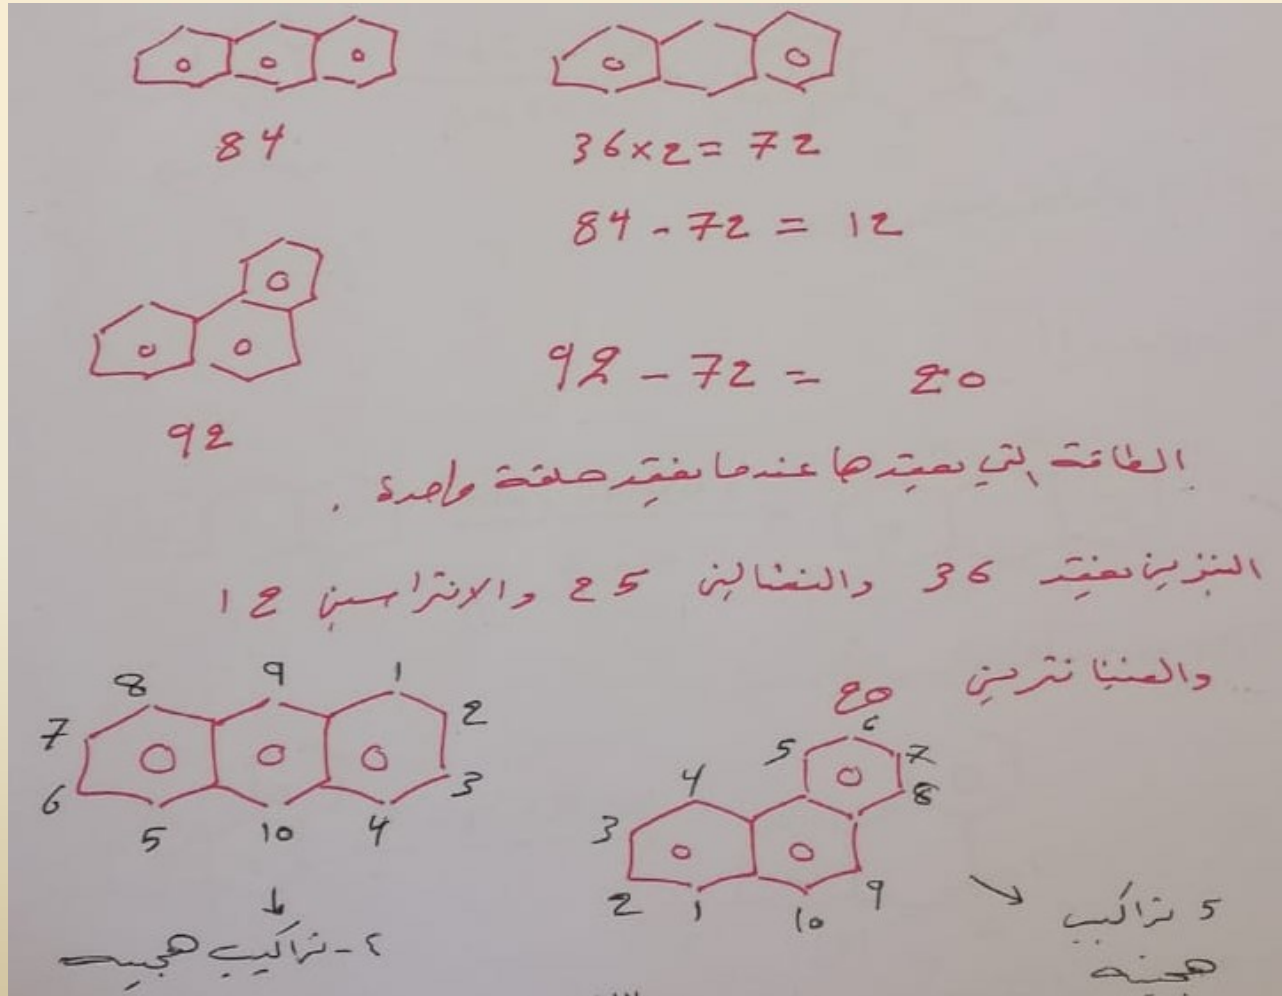 84
36×2=72
84-72=12
92-72= 20
92
الطاقة التي يفقدها عندما يفقد حلقة واحدة.
البنزين يفقد 36 والنفثالين 25 والانتراسين 12
والفينانترين 20
8 9 1
7 2
6 3
5 10 4
6
5 7
4 8
3
2 1 10 9
٤-تراكيب هجينه
5 تراكيب
هجينه